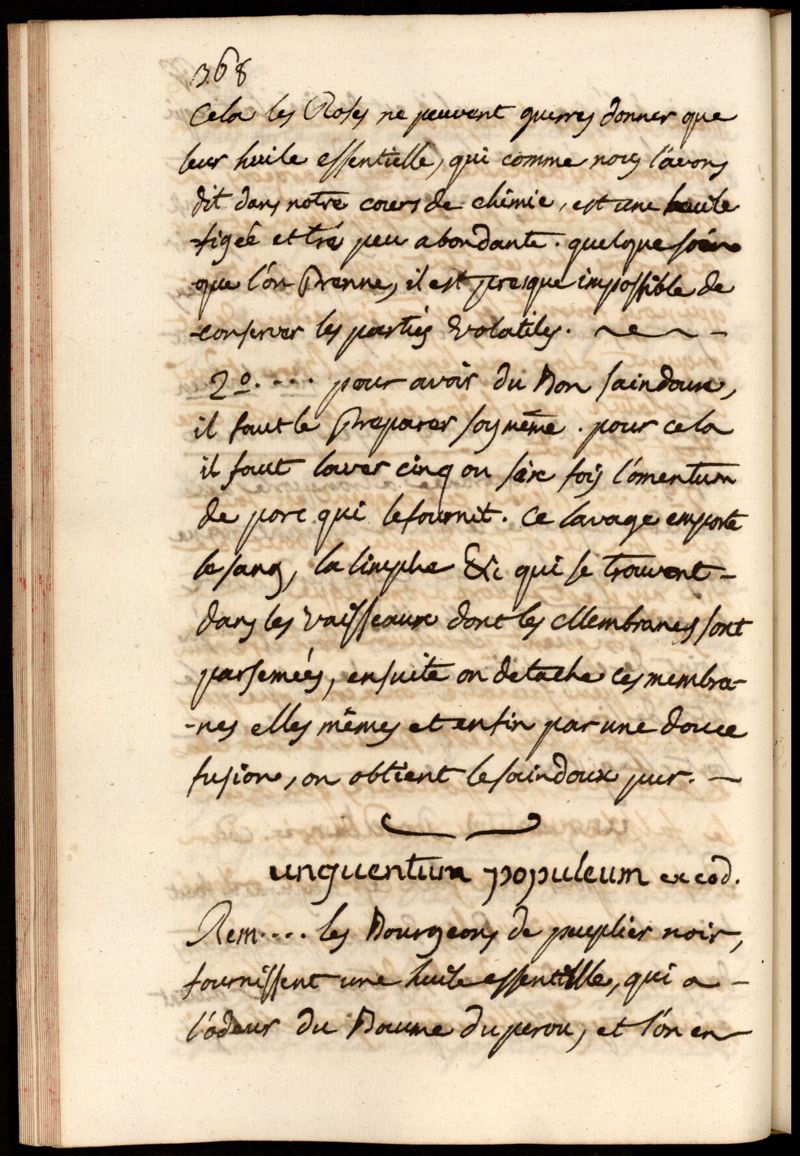 368
Cela les Roses ne peuvent guerres donner que
leur huile essentielle, qui comme nous l'avons
dit dans notre cours de chimie, est une huile
figée et tré peu abondante. quelque soin
que l'on Prenne, il est presque impossible de
conserver les parties Volatiles.
2º.... pour avoir du Bon saindoux,
il faut le Preparer soy même. pour cela
il faut laver cinq ou six fois l'omentum
de porc qui le fournit. Ce lavage emporte
le sang, la limphe &c qui se trouvent
dans les vaisseaux dont les Membranes sont
parsemées, ensuite on detache ces membra-
-nes elles mêmes et enfin par une douce
fusion, on obtient le saindoux pur.
unguentum populeum ex cod.
Rem.... les Bourgeons de puplier noir,
fournissent une huile essentielle, qui a
l'odeur du Baume du perou, et l'on en